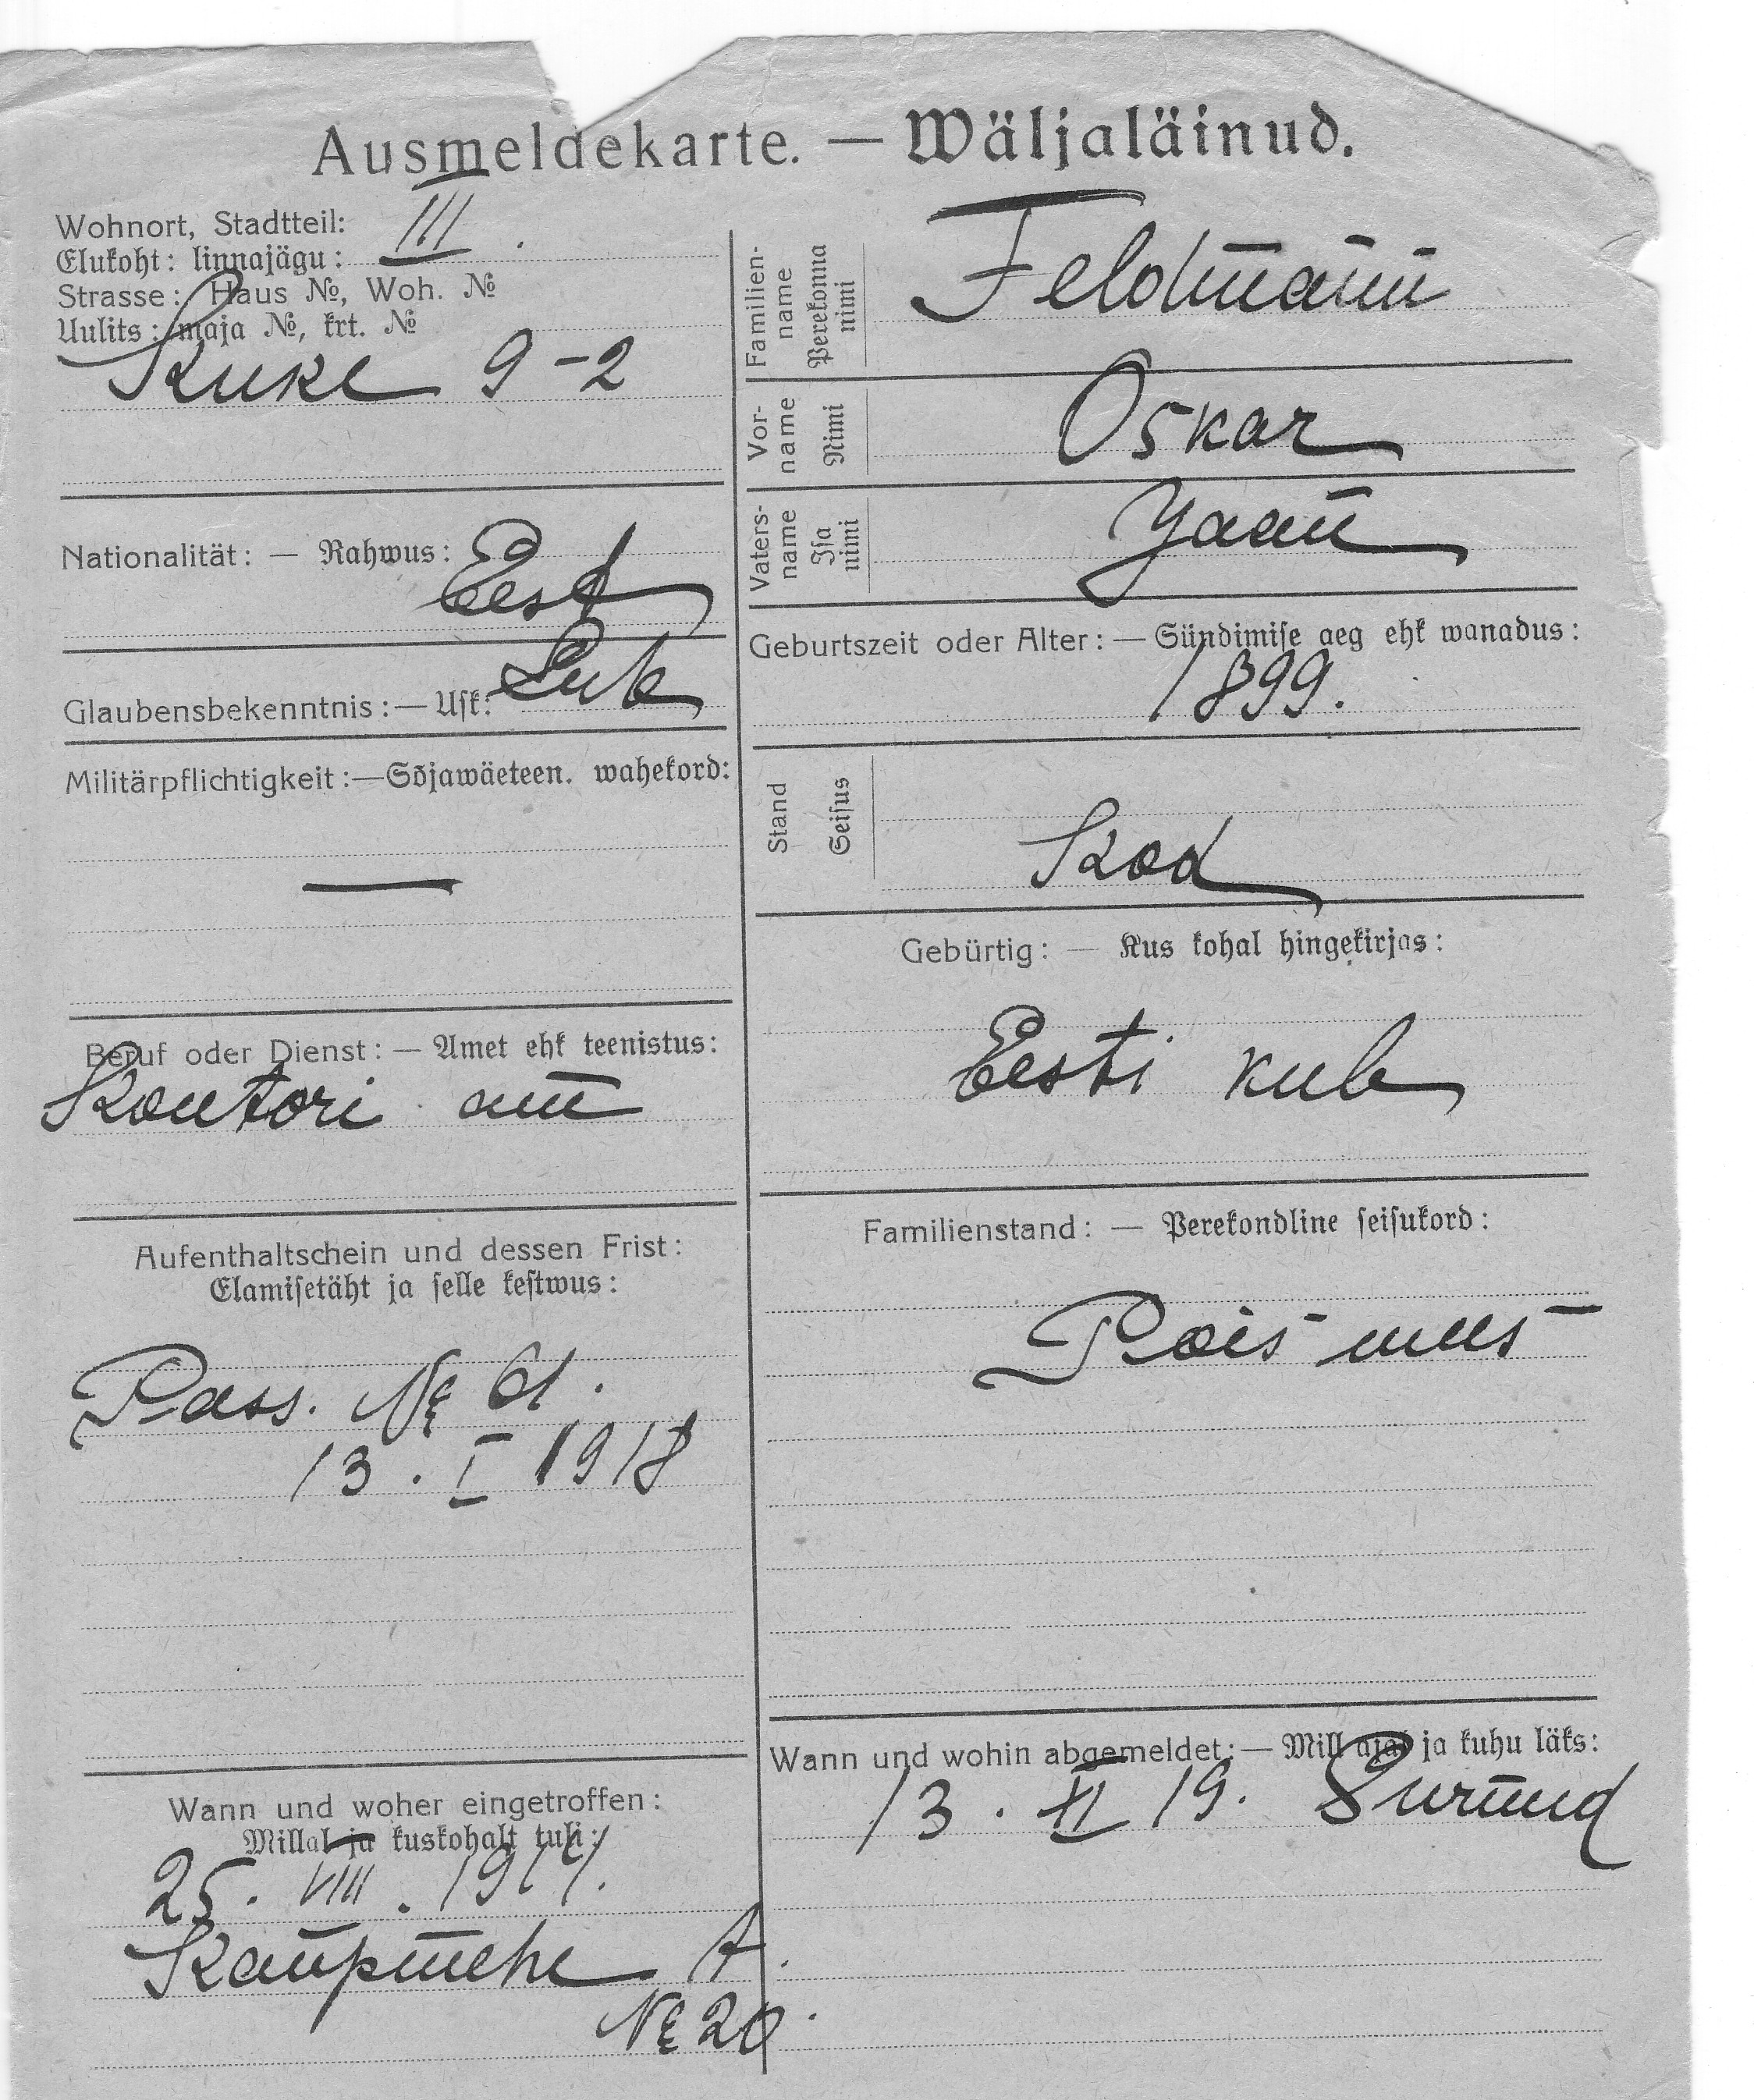 Ausmeldekarte. — Wäljaläinud.
Wohnort, Stadtteil:
Elukoht: linnajägu: III.
Strasse: Haus №, Woh. №
Uulits: maja №, krt. №
Kuke 9-2
Nationalität: — Rahwus:
Eest
Glaubensbekenntnis: — Usk: Lut
Militärpflichtigkeit: — Sõjawäeteen. wahekord:
—
Beruf oder Dienst: — Amet ehk teenistus:
Kontori am̅
Aufenthaltschein und dessen Frist:
Elamisetäht ja selle kestwus:
Pass. № 61.
13. I 1918
Wann und woher eingetroffen:
Millal ja kuskohalt tuli:
25. VIII. 1917.
Kaupmehe t.
№ 20.
Familien-
name
Perekonna
nimi
Feldmann
Vor-
name
Nimi
Oskar
Vaters-
name
Isa
nimi
Jaan
Geburtszeit oder Alter: — Sündimise aeg ehk wanadus:
1899.
Stand
Seisus
Kod
Gebürtig: — Kus kohal hingekirjas:
Eesti kub
Familienstand: — Perekondline seisukord:
Pois mees
Wann und wohin abgemeldet: — Mill ajal ja kuhu läks:
13. XI 19. Surnud